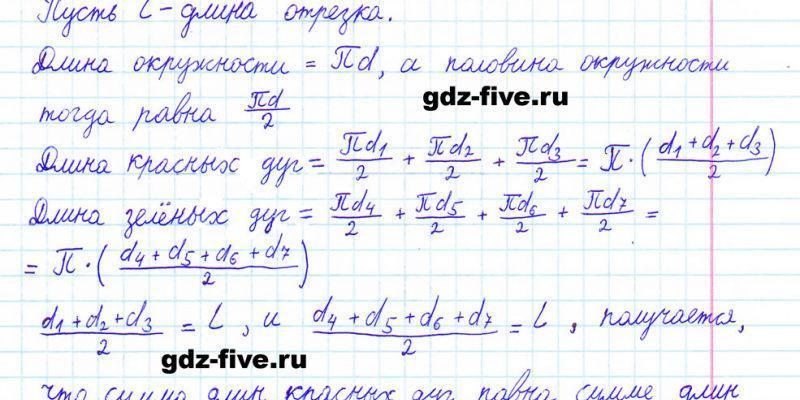 Пусть L - длина отрезка.
Длина окружности = πd, а половина окружности
gdz-five.ru
тогда равна πd/2
Длина красных дуг = πd1/2 + πd2/2 + πd3/2 = π·(d1+d2+d3/2)
Длина зелёных дуг = πd4/2 + πd5/2 + πd6/2 + πd7/2 =
= π·(d4+d5+d6+d7/2)
d1+d2+d3/2 = L, и d4+d5+d6+d7/2 = L, получается,
gdz-five.ru
что сумма длин красных дуг равна сумме длин